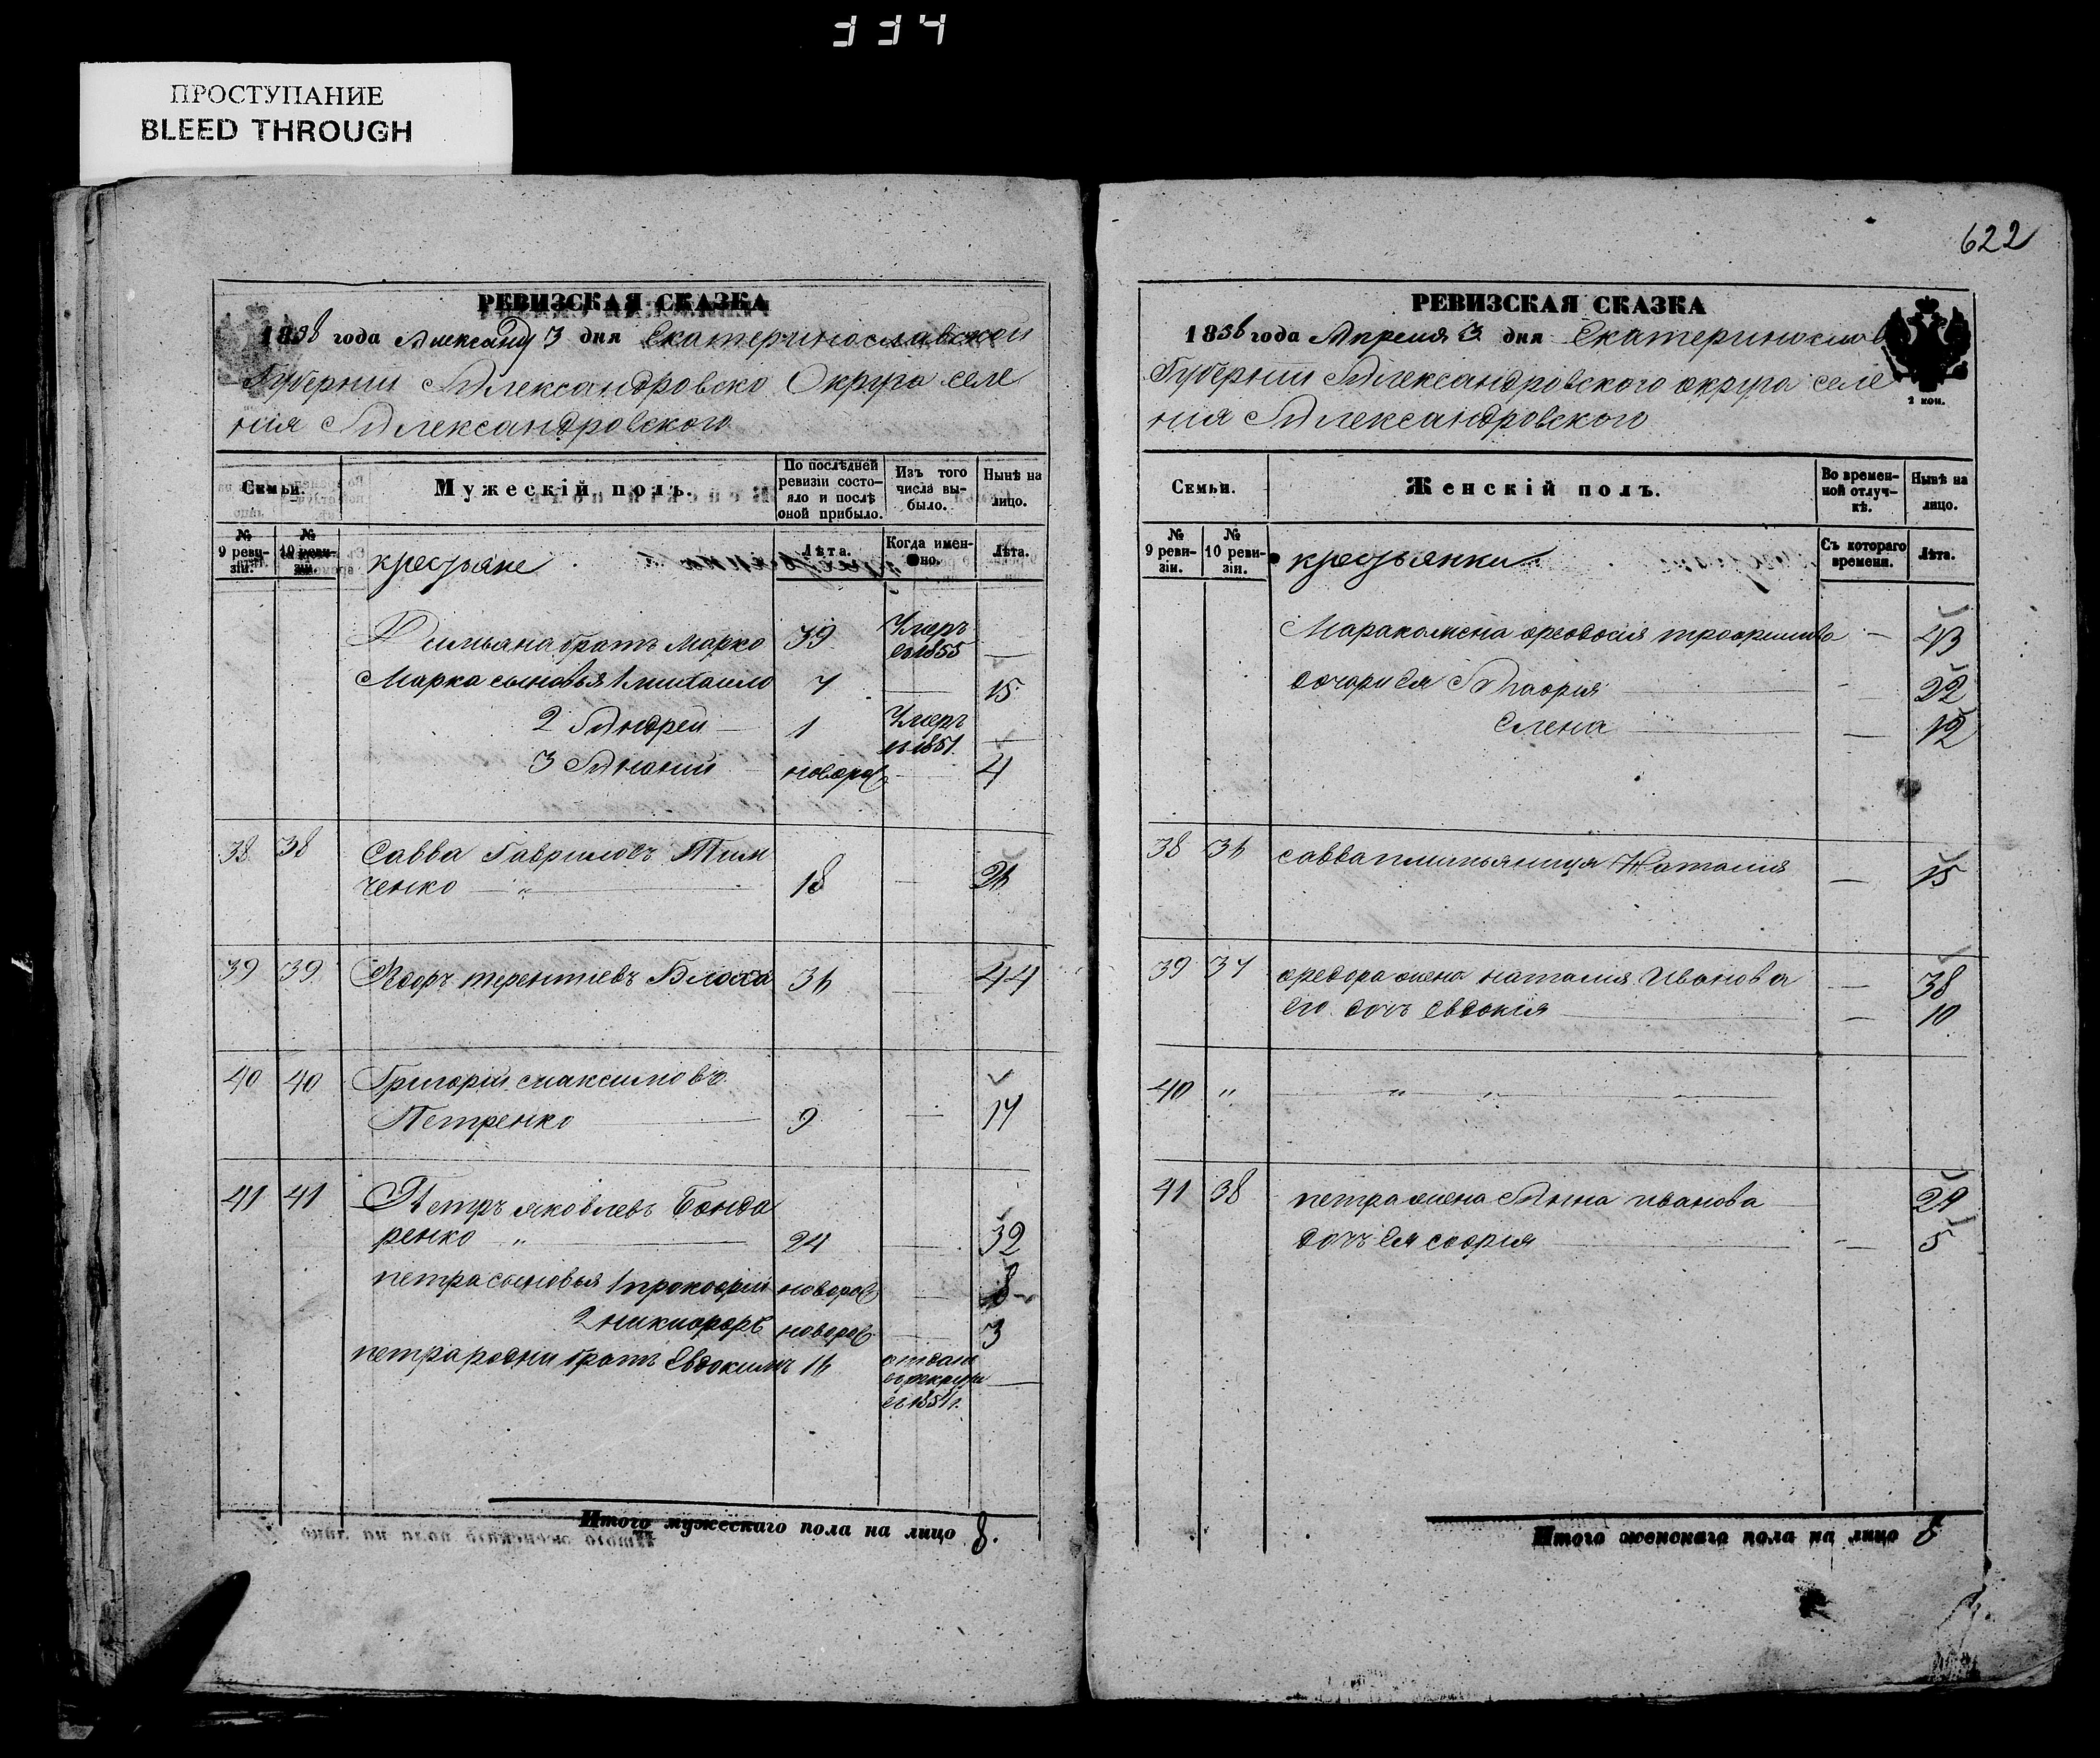 334
ПРОСТУПАНИЕ
BLEED THROUGH
РЕВИЗСКАЯ СКАЗКА
1858 года 3 дня Екатеринославской
Губернии Александровско Округа селе
ния Александровского
Семьи.
Мужескій полъ.
По послѣдней ревизіи состояло и послѣ оной прибыло.
Изъ того числа выбыло.
Нынѣ на лицо.
№ 9 ревизіи.
№ 10 ревизіи.
крестьяне
Лѣта.
Когда именно.
Лѣта.
Емельяна братъ Марко 39 Умеръ в 1855 —
Марка сыновья 1 михаило 7 — 15
2 Андрей — 1 Умеръ в 1851 —
3 Ананий — новорож — 4
38 38 Савва Гавриловъ Тим
ченко — " — 18 — 26
39 39 Федоръ терентиевъ Блоха 36 — 44
40 40 Григорий максимовъ
Петренко — 9 — 17
41 41 Петръ яковлевъ Бонда
ренко — " — 24 — 32
петра сыновья 1 прокофий новорож — 8
2 никифоръ новорож — 3
петра родни братъ Евдокимъ 16 отдан в рекруты в 1854 г. —
Итого мужескаго пола на лицо 8.
622
РЕВИЗСКАЯ СКАЗКА
1858 года Апреля 3 дня Екатеринослав
Губернии Александровского округа селе
ния Александровского
2 коп.
Семьи.
Женскій полъ.
Во временной отлучкѣ.
Нынѣ на лицо.
№ 9 ревизіи.
№ 10 ревизіи.
крестьянки
Съ котораго времени.
Лѣта.
Марка жена феодосия трофимова — 43
дочери Ея — 22
Елена — 12
38 36 савва Наталия — 15
39 37 федора жена наталия Иванова — 38
Его дочъ Евдокия — 10
40 " — " — " —
41 38 петра жена Анна иванова 29
дочъ Ея софия — 5
Итого женскаго пола на лицо 8